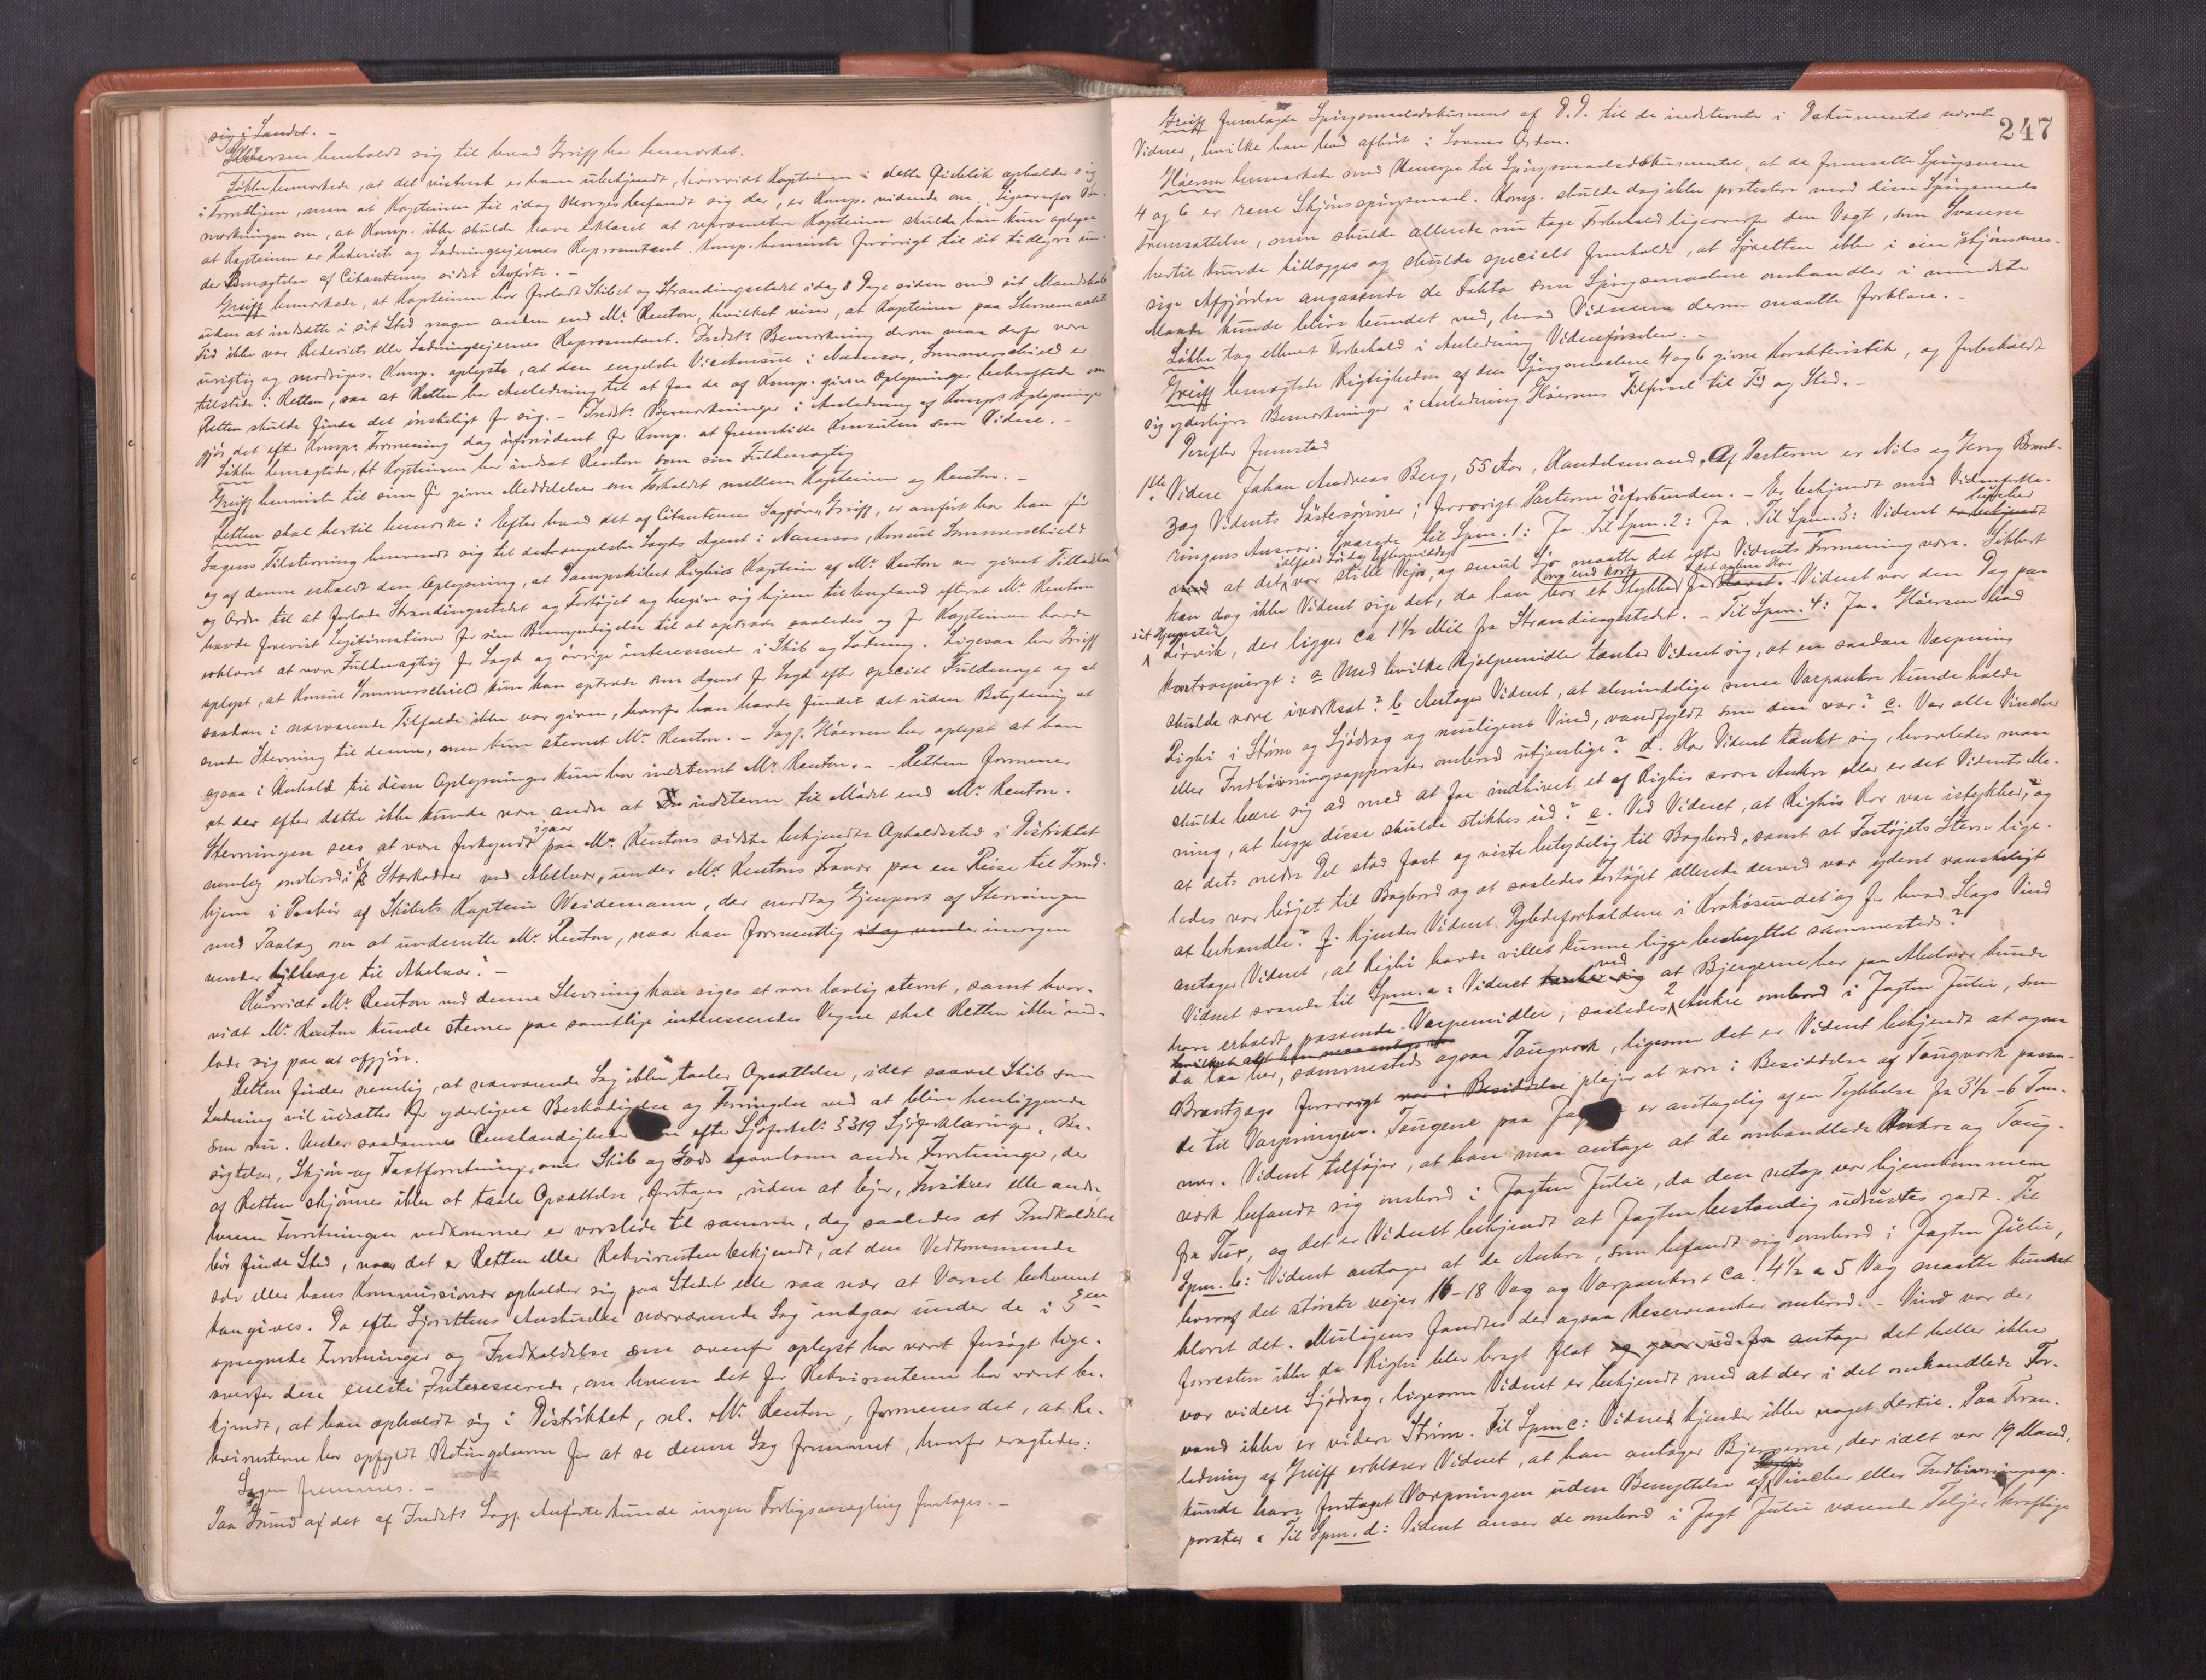 sig i Landet. –
Håersen henholdt sig til hvad Greiff har bemærket.
Løkke bemærkede, at det vistnok er ham ubekjendt, hvorvidt Kapteinen i dette Øieblik opholder sig
i Trondhjem, men at Kapteinen til idag Morges befandt sig der, er Komp. vidende om. Ligeoverfor Be-
mærkningen om, at Komp. ikke skulde have erklæret at repræsentere Kapteinen skulde han kun oplyse
at Kapteinen er Rederiets og Ladningseiernes Repræsentant. Komp. henviste forøvrigt til sit tidligere un-
der Benægtelse af Citanternes sidst Anførte. –
Greiff bemærkede, at Kapteinen har forladt Skibet og Strandingsstedet idag 8 Dage siden med sit Mandskab
uden at indsætte i sit Sted nogen anden end Mr. Renton, hvilket viser, at Kapteinen paa Stevnemaalets
Tid ikke var Rederiets eller Ladningseiernes Repræsentant. Indst. Bemærkning derom maa derfor være
urigtig og modsiges. Komp. oplyste, at den engelske Vicekonsul i Namsos, Sommerschield er
tilstede i Retten, saa at Retten har Anledning til at faa de af Komp. givne Oplysninger bekræftede om
Retten skulde finde det ønskeligt for sig. – Indst. Bemærkninger i Anledning af Komps Oplysninger
gjør det efter Komps Formening dog ufornødent for Komp. at fremstille Konsulen som Vidne. –
Løkke benægtede, at Kapteinen har indsat Renton som sin Fuldmægtig
Greiff henviste til sine før givne Meddelelser om Forholdet mellem Kapteinen og Renton. –
Retten skal hertil bemærke: Efter hvad det af Citanternes Sagfører, Greiff, er anført har han før
Sagens Tilstevning henvendt sig til det engelske Lloyds Agent i Namsos, Konsul Sommerschield
og af denne erholdt den Oplysning, at Dampskibet Righis Kaptein af Mr. Renton var givet Tilladelse
og Ordre til at forlade Strandingsstedet og Fartøjet og begive sig hjem til England efterat Mr. Renton
havde forevist Legitimationer for sin Bemyndigelse til at optræde saaledes og for Kapteinen havde
erklæret at være Fuldmægtig for Lloyd og øvrige interesserede i Skib og Ladning. Ligesaa har Greiff
oplyst, at Konsul Sommerschield kun kan optræde som Agent for Lloyd efter speciel Fuldmagt og at
saadan i nærværende Tilfælde ikke var given, hvorfor han havde fundet det uden Betydning at
sende Stevning til denne, men kun stevnet Mr. Renton. – Sagf. Håersen har oplyst at han
ogsaa i Henhold til disse Oplysninger kun har indstevnt Mr. Renton. – Retten formener
at der efter dette ikke kunde være andre at indstevne til Mødet end Mr. Renton.
Stevningen sees at være forkyndt igaar paa Mr. Rentons sidste bekjendte Opholdssted i Distriktet
nemlig ombord i D/S Stærkodder ved Abelvær, under Mr. Rentons Fravær paa en Reise til Trond-
hjem i Paahør af Skibets Kaptein Weidemann, der modtog Gjenpart af Stevningen
med Paalæg om at underrette Mr. Renton, naar han formentlig idag vender imorgen
vender tilbage til Abelvær. –
Hvorvidt Mr. Renton ved denne Stevning kan siges at være lovlig stevnt, samt hvor-
vidt Mr. Renton kunde stevnes paa samtlige interesseredes Vegne skal Retten ikke ind-
lade sig paa at afgjøre.
Retten finder nemlig, at nærværende Sag ikke taaler Opsættelse, idet saavel Skib som
Ladning vil udsættes for yderligere Beskadigelse og Forringelse ved at blive henliggende
som nu. Under saadanne Omstændigheder kan efter Sjøfartsl. § 319 Sjøforklaringer, Be-
sigtelser, Skjøn- og Taxtforretninger over Skib og Gods og saadanne andre Forretninger, der
af Retten skjønnes ikke at taale Opsættelse, foretages, uden at Ejer, Assurerer eller andre,
hvem Forretningen vedkommer er varslede til samme, dog saaledes at Indkaldelse
bør finde Sted, naar det er Retten eller Rekvirenten bekjendt, at den Vedkommende
selv eller hans Kommissionær opholder sig paa Stedet eller saa nær at Varsel bekvemt
kan gives. Da efter Sjørettens Anskuelse nærværende Sag indgaar under de i § en
opregnede Forretninger og Indkaldelse som ovenfor oplyst har været forsøgt lige-
overfor den eneste Interesserede, om hvem det for Rekvirenterne har været be-
kjendt, at han opholdt sig i Distriktet, nl. Mr. Renton, formenes det, at Re-
kvirenterne har opfyldt Betingelserne for at se denne Sag fremmet, hvorfor eragtedes:
Sagen fremmes. –
Paa Grund af det af Indsts Sagf. Anførte kunde ingen Forligsmægling foretages. –
247
Greiff fremlagde Spørgsmaalsdokument af D.D. til de indstevnte i Dokumentet nævnte
Vidner, hvilke han bad afhørt i Lovens Orden.
Håersen bemærkede med Hensyn til Spørgsmaalsdokumentet, at de fremsatte Spørgsmaal
4 og 6 er rene Skjønsspørgsmaal. Komp. skulde dog ikke protestere mod disse Spørgsmaals
Fremsættelse, men skulde allerede nu tage Forbehold ligeoverfor den Vægt, som Svarene
hertil kunde tillægges og skulde specielt fremholde, at Sjøretten ikke i sine skjønsmæs-
sige Afgjørelser angaaende de Fakta som Spørgsmaalene omhandler i mindste
Maade kunde blive bundet ved, hvad Vidnerne derom maatte forklare. –
Løkke tog ethvert Forbehold i Anledning Vidneførselen. –
Greiff benægtede Rigtigheden af den Spørgsmaalene 4 og 6 givne Karakteristik, og forbeholdt
sig yderligere Bemærkninger i Anledning Håersens Tilførsel til Tid og Sted. –
Derefter fremstod
1ste Vidne Johan Andreas Berg, 55 Aar, Handelsmand. Af Parterne er Nils og Georg Brant-
zæg Vidnets Søstersønner; forøvrigt Parterne uforbunden. – Er bekjendt med Vidneforkla-
ringens Ansvar. Svarede til Spm. 1: Ja. Til Spm. 2: Ja. Til Spm. 3: Vidnet er bekjendt husker
med at det ialfald Lørdag Eftermiddag var stille Vejr, og smul Sjø maatte det efter Vidnets Formening være. Sikkert
kan dog ikke Vidnet sige det, da han bor et Stykke fra Havet. Vidnet var den Dag paa
sit Hjemsted
dirvik, der ligger ca 1½ Mil fra Strandingsstedet. – Til Spm. 4: Ja. Håersen lod
kontraspørgt: a Med hvilke Hjælpemidler tænker Vidnet sig, at en saadan Varpning
skulde være iværksat? b Antager Vidnet, at almindelige smaa Varpankre kunde holde
Righi i Strøm og Sjødrag og muligens Vind, vandfyldt som den var? c. Var alle Vincher
eller Indhivningsapparater ombord utjenlige? d. Har Vidnet tænkt sig, hvorledes man
skulde bære sig ad med at faa indhivet et af Righis svære Ankre eller er det Vidnets Me-
ning, at begge disse skulde stikkes ud? e. Ved Vidnet, at Righis Ror var istykker, og
at dets nedre Del stod fast og viste betydelig til Bagbord, samt at Fartøjets Stevn lige-
ledes var bøjet til Bagbord og at saaledes Fartøjet allerede derved var yderst vanskeligt
at behandle? f. Kjender Vidnet Dybdeforholdene i Krakøsundet og for hvad Slags Vind
antager Vidnet, at Righi havde villet kunne ligge beskyttet sammesteds?
Vidnet svarede til Spm. a: Vidnet tænker sig ved at Bjergerne her paa Abelvær kunde
have erholdt passende Varpemidler, saaledes 2 Ankre ombord i Jagten Julie, som
da laa her, sammesteds ogsaa Taugværk, ligesom det er Vidnet bekjendt at ogsaa
Brantzægs forøvrigt var i Besiddelse plejer at være i Besiddelse af Taugværk passen-
de til Varpningen. Taugene paa Jagten er antagelig af en Tykkelse fra 3½ – 6 Tom-
mer. Vidnet tilføjer, at han maa antage at de omhandlede Ankre og Taug-
værk befandt sig ombord i Jagten Julie, da den netop var hjemkommen
fra Tur, og det er Vidnet bekjendt at Jagten bestandig udrustes godt. Til
Spm. b: Vidnet antager at de Ankre, som befandt sig ombord i Jagten Julie,
hvoraf det største vejer 16–18 Vog og Varpankret ca. 4½ a 5 Vog maatte kunnet
klaret det. Muligens fandtes der ogsaa Reserveanker ombord. – Vind var der
forresten ikke da Righi blev bragt flot og gaar ud fra antager det heller ikke
var videre Sjødrag, ligesom Vidnet er bekjendt med at der i det omhandlede Far-
vand ikke er videre Strøm. Til Spm c: Vidnet kjender ikke noget dertil. Paa Foran-
ledning af Greiff erklærer Vidnet, at han antager Bjergerne, der ialt var 19 Mand,
kunde have foretaget Varpningen uden Benyttelse af Vincher eller Indhivningsap-
parater. Til Spm. d: Vidnet anser de ombord i Jagt Julie værende Taljer kraftige